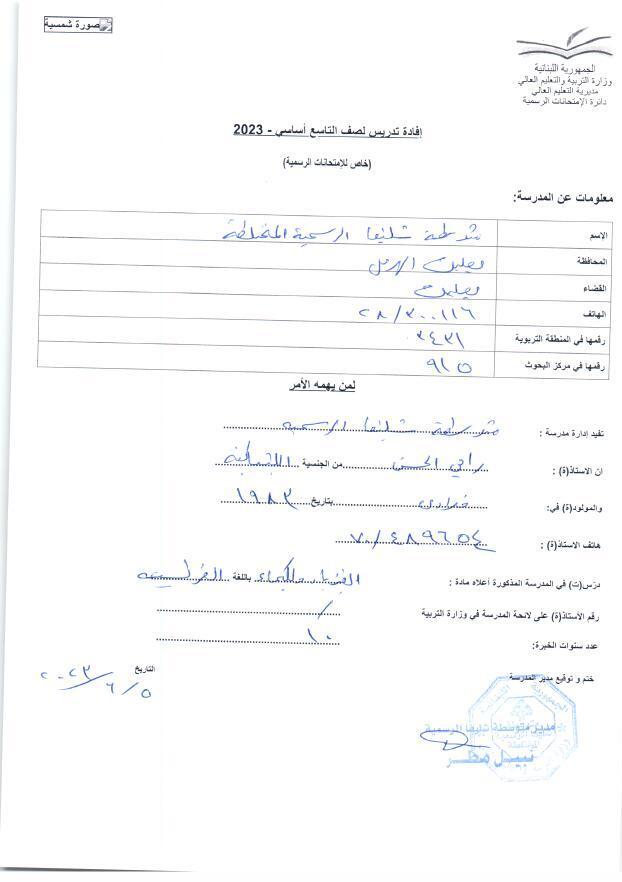 صورة شمسية
الجمهورية اللبنانية
وزارة التربية والتعليم العالي
مديرية التعليم العالي
دائرة الإمتحانات الرسمية
إفادة تدريس لصف التاسع أساسي - 2023
(خاص للإمتحانات الرسمية)
معلومات عن المدرسة:
الإسم متوسطة شليفا الرسمية المختلطة
المحافظة بعلبك الهرمل
القضاء بعلبك
الهاتف ٢٨/٣٠٠١١٦
رقمها في المنطقة التربوية ٣٤٣١
رقمها في مركز البحوث ٩١٥
لمن يهمه الأمر
تفيد إدارة مدرسة : متوسطة شليفا الرسمية
ان الاستاذ(ة) : رامي الحسن من الجنسية اللبنانية
والمولود(ة) في: بتاريخ ١٩٨٣
هاتف الاستاذ(ة) : ٧٠/٤٨٩٦٥٤
درّس(ت) في المدرسة المذكورة أعلاه مادة : الفيزياء والكيمياء باللغة الفرنسية
رقم الأستاذ(ة) على لائحة المدرسة في وزارة التربية /
عدد سنوات الخبرة: ١٠
ختم و توقيع مدير المدرسة
التاريخ ٢٠٢٣/٦/٥
مدير متوسطة شليفا الرسمية
نبيل مطر